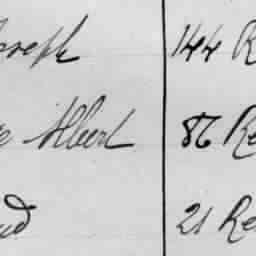 Joseph 144 R
Albert 86 Re
21 Re